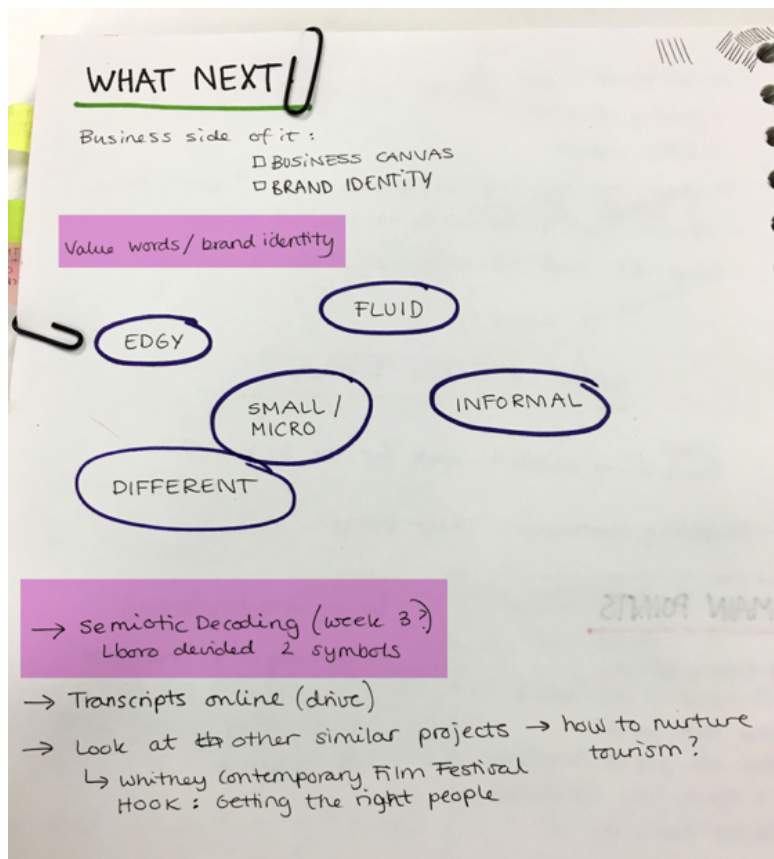 WHAT NEXT
Business side of it:
BUSINESS CANVAS
BRAND IDENTITY
Value words / brand identity
FLUID
EDGY
SMALL /
MICRO
INFORMAL
DIFFERENT
→ Semiotic Decoding (week 3?)
Lboro devided 2 symbols
→ Transcripts online (drive)
→ Look at other similar projects → how to nurture
tourism?
↳ Whitney Contemporary Film Festival
HOOK: Getting the right people
MAIN POINTS